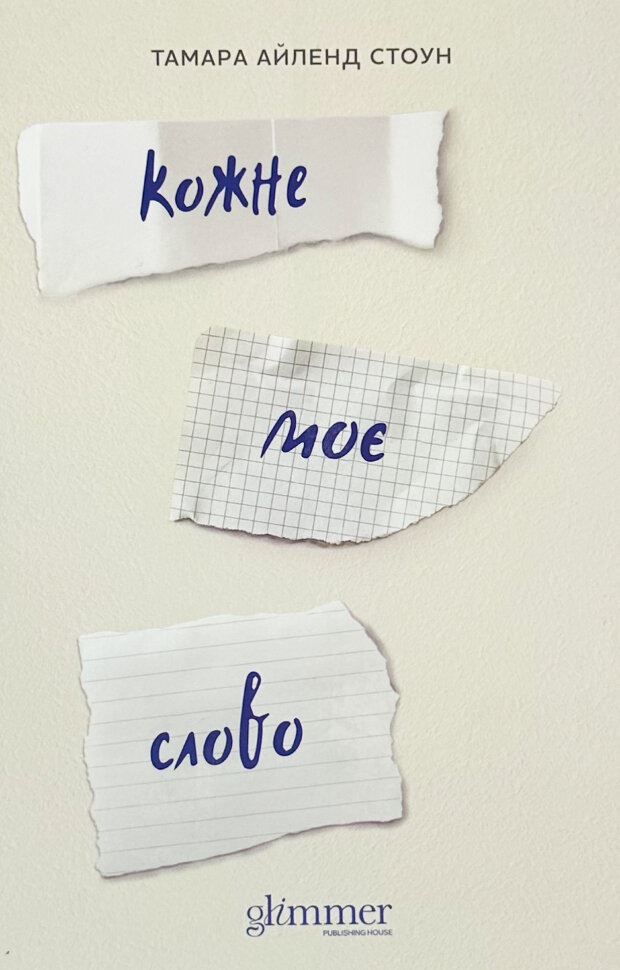 ТАМАРА АЙЛЕНД СТОУН
кожне
моє
слово
glimmer
PUBLISHING HOUSE